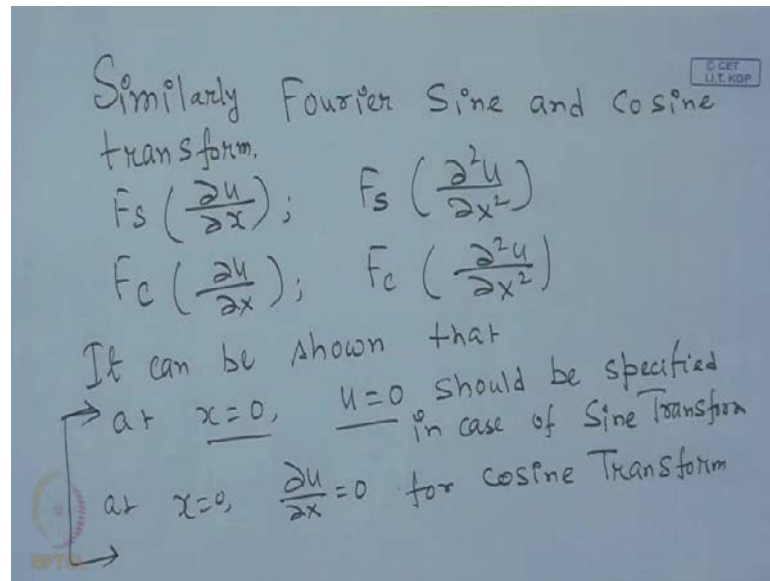 © CET
I.I.T. KGP
Similarly Fourier Sine and Cosine
transform.
Fs (∂u/∂x); Fs (∂²u/∂x²)
Fc (∂u/∂x); Fc (∂²u/∂x²)
It can be shown that
at x=0, u=0 should be specified
in case of Sine Transfrom
at x=0, ∂u/∂x=0 for cosine Transform
NPTEL